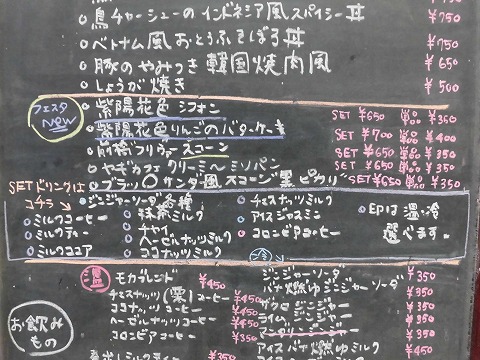 鳥チャーシューのインドネシア風スパイシー丼 ¥750
ベトナム風おとうふそぼろ丼 ¥750
豚のやみつき韓国焼肉風 ¥650
しょうが焼き ¥500
フェスタ NEW
紫陽花色シフォン SET ¥650 単品 ¥350
紫陽花色りんごのバターケーキ SET ¥700 単品 ¥400
スコーン SET ¥650 単品 ¥350
ヤギカフェ クリーミィ ミソパン SET ¥650 単品 ¥350
ブラッ〇サンダー風スコーン"黒 SET ¥650 ¥350
SETドリンクはコチラ
ジンジャーソーダ各種
ミルクコーヒー
ミルクティー
ミルクココア
抹茶ミルク
チャイ
ヘーゼルナッツミルク
ココナッツミルク
チェスナッツミルク
アイスジャスミン
コロンビアコーヒー
○印は温・冷
選べます。
お飲みもの
温
モカブレンド ¥450
チェスナッツ(栗)コーヒー ¥450
ココナッツコーヒー ¥450
ヘーゼルナッツコーヒー ¥450
コロンビアコーヒー ¥450
¥350
冷
ジンジャーソーダ ¥350
バナ燃ゆジンジャーソーダ ¥350
ザクロ ジンジャー ¥350
コイン ジンジャー ¥350
¥350
アイスバナ燃ゆミルク ¥450